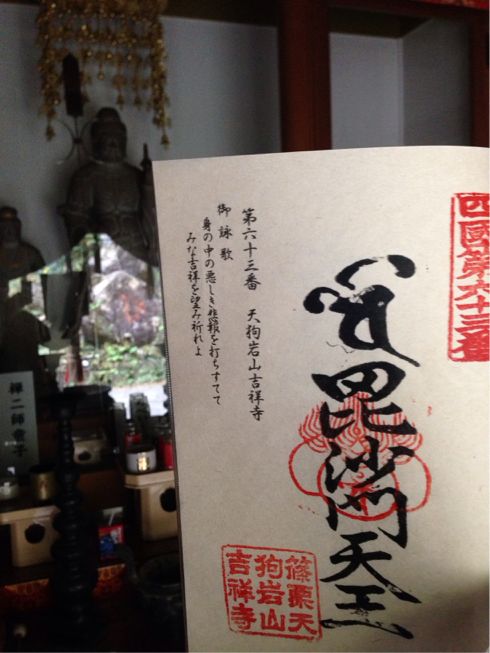 四國第六十三番
毘沙門天王
第六十三番　天狗岩山吉祥寺
御詠歌
身の中の悪しき悲報を打ちすてて
みな吉祥を望み祈れよ
篠栗天
狗岩山
吉祥寺
禅二師童子